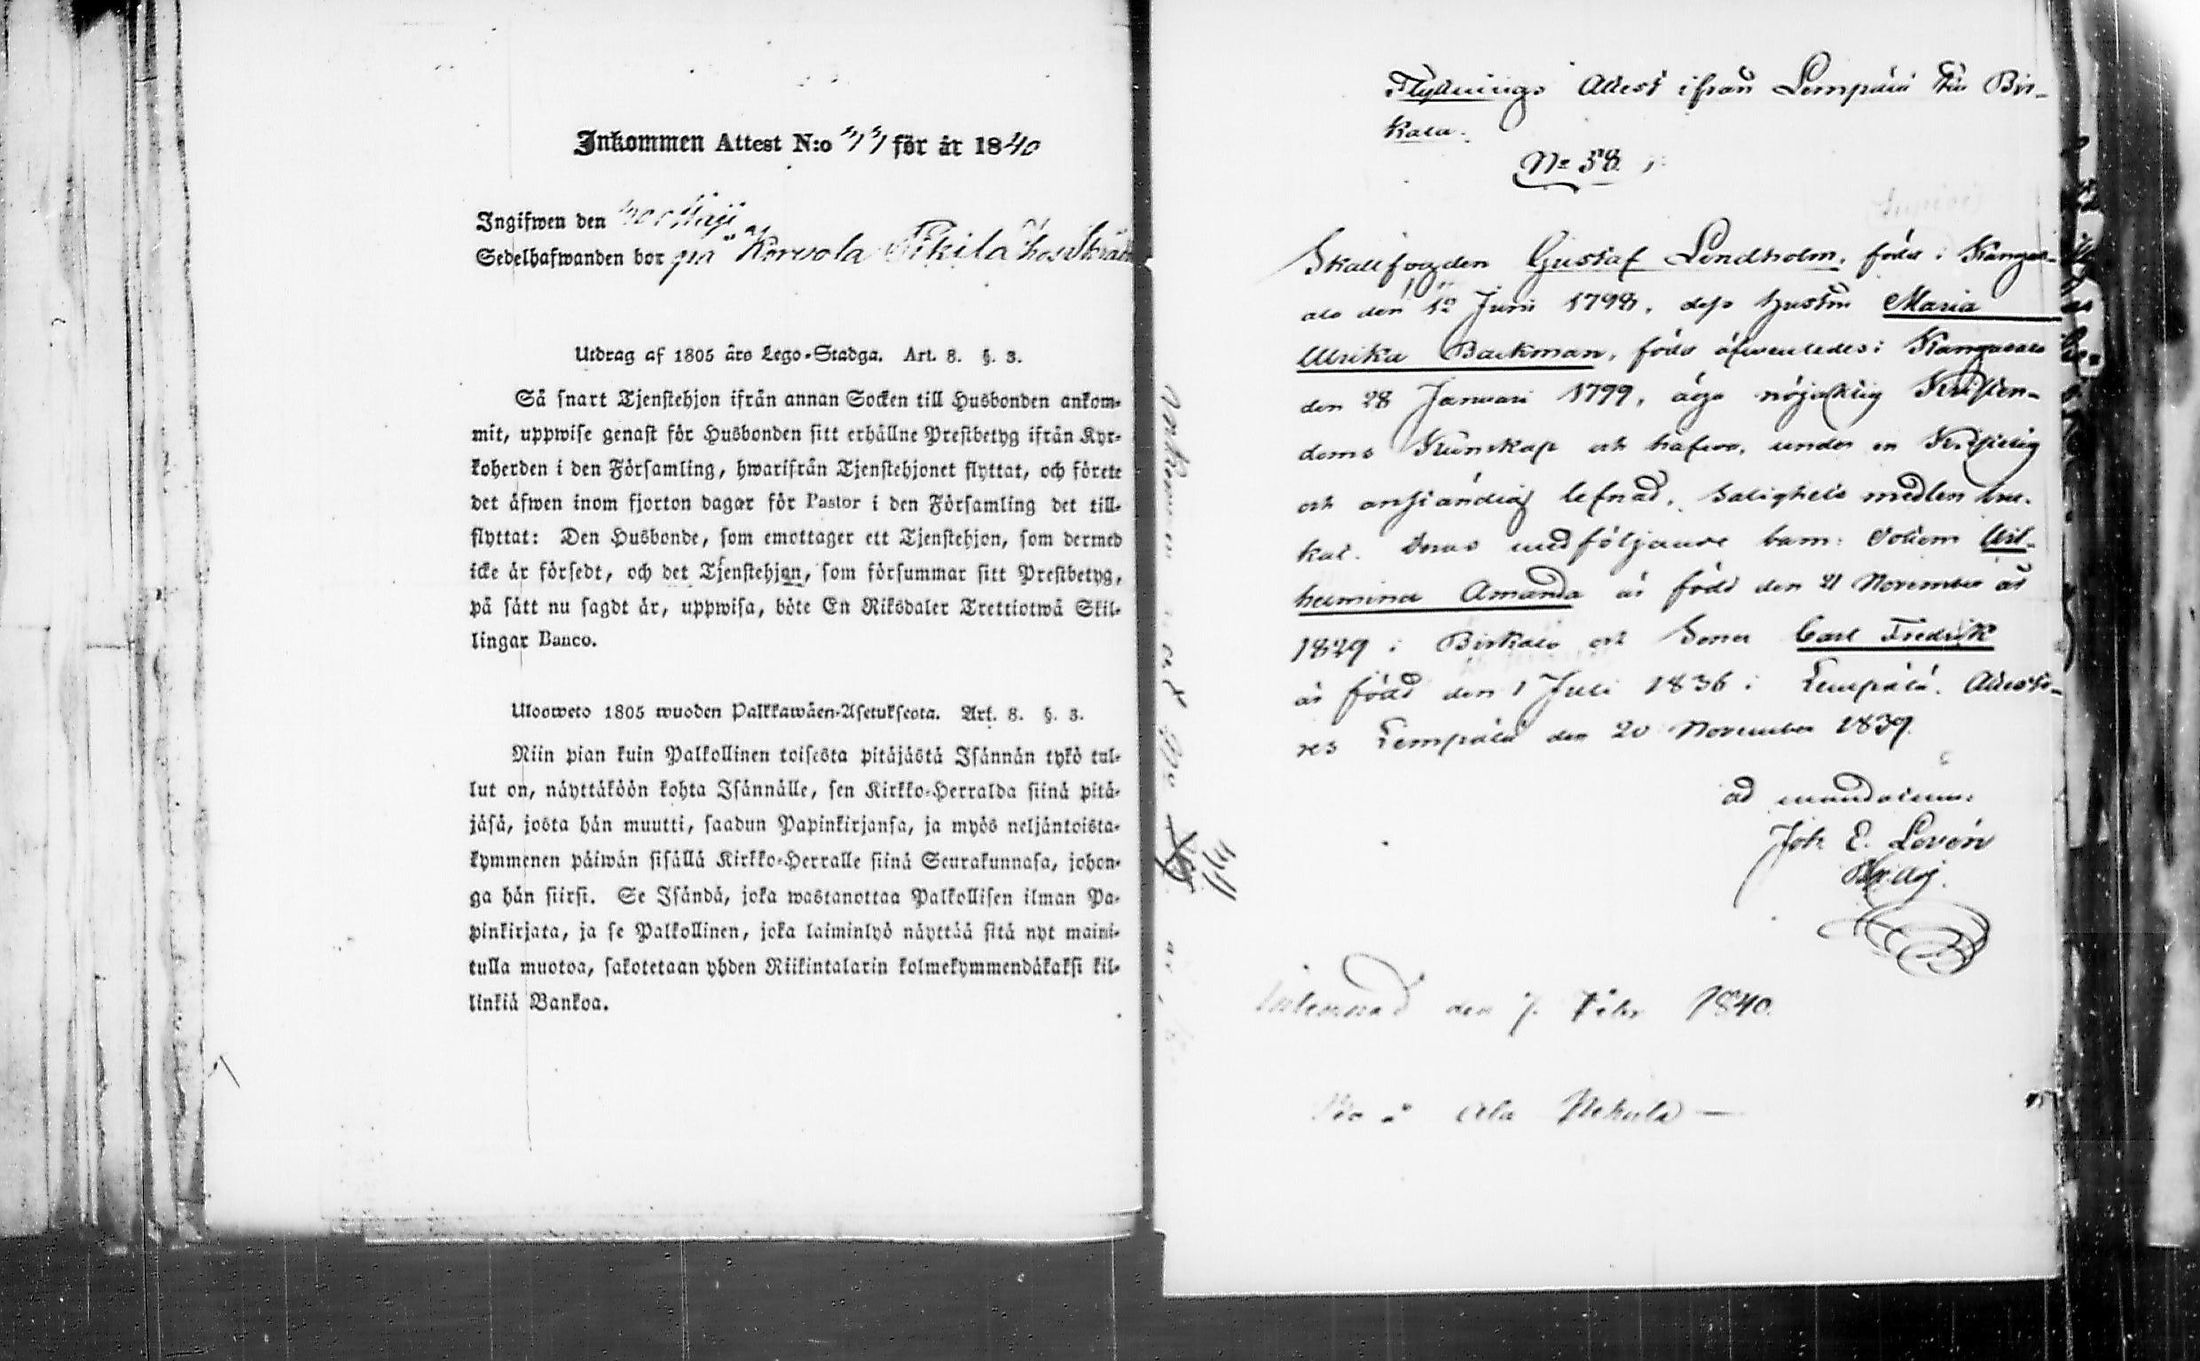 Inkommen Attest N:o för år 1840
Ingifwen den
Sedelhafwanden bor på Korwola Pikilä hos
Utdrag af 1805 års Lego-Stadga. Art. 8. §. 3.
Så snart Tjenstehjon ifrån annan Socken till Husbonden ankom-
mit, uppwise genast för Husbonden sitt erhållne Prestbetyg ifrån Kyr-
koherden i den Församling, hwarifrån Tjenstehjonet flyttat, och förete
det äfwen inom fjorton dagar för Pastor i den Församling det till-
flyttat: Den Husbonde, som emottager ett Tjenstehjon, som dermed
icke är försedt, och det Tjenstehjon, som försummar sitt Prestbetyg,
på sätt nu sagdt är, uppwisa, böte En Riksdaler Trettiotwå Skil-
lingar Banco.
Ulosweto 1805 wuoden Palkkawäen-Asetuksesta. Art. 8. §. 3.
Niin pian kuin Palkollinen toisesta pitäjästä Isännän tykö tul-
lut on, näyttäköön kohta Isännälle, sen Kirkko-Herralda siinä pitä-
jäsä, josta hän muutti, saadun Papinkirjansa, ja myös neljäntoista-
kymmenen päiwän sisällä Kirkko-Herralle siinä Seurakunnasa, johon-
ga hän siirsi. Se Isändä, joka wastanottaa Palkollisen ilman Pa-
pinkirjata, ja se Palkollinen, joka laiminlyö näyttää sitä nyt maini-
tulla muotoa, sakotetaan yhden Riikintalarin kolmekymmendäkaksi kil-
linkiä Bankoa.
Flyttnings Attest ifrån Lempäla till Bir-
kala.
No 58.
Skallfogden Gustaf Lindholm, född i Kangas-
ala den 12 Junii 1798, dess hustru Maria
Ulrika Backman, född äfwenledes i Kangasala
den 28 Januari 1799, äga nöjaktig Kristen-
doms Kunskap och hafwa, under en Kristelig
och anständig lefnad, Salighets medlen bru-
kat. Deras medföljande barn: Dottern Wil-
helmina Amanda är född den 21 November år
1829 i Birkala och Sonen Carl Fredrik
är född den 1 Juli 1836 i Lempälä. Atteste-
res Lempälä den 20 November 1839.
ad mandatum:
Joh E. Lovén
den 7. Febr 1840.
Bo å Ala